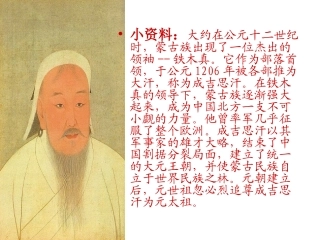 • 小资料：大约在公元十二世纪
时，蒙古族出现了一位杰出的
领袖--铁木真。它作为部落首
领，于公元1206年被各部推为
大汗，称为成吉思汗。在铁木
真的领导下，蒙古族逐渐强大
起来，成为中国北方一支不可
小觑的力量。他曾率军几乎征
服了整个欧洲。成吉思汗以其
军事家的雄才大略，结束了中
国割据分裂局面，建立了统一
的大元王朝，并使蒙古民族自
立于世界民族之林。元朝建立
后，元世祖忽必烈追尊成吉思
汗为元太祖。